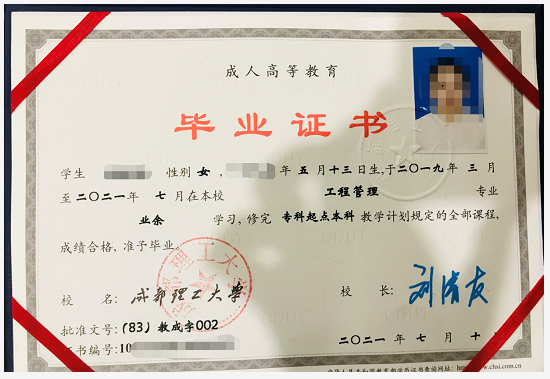 成人高等教育
毕业证书
学生 性别 女 , 年 五 月 十三 日生,于二〇一九年 三 月
至二〇二一年 七 月在本校 工程管理 专业
业余 学习, 修完 专科起点本科 教学计划规定的全部课程,
成绩合格, 准予毕业。
校 名: 成都理工大学 校 长: 刘清友
批准文号: (83) 教成字002
证书编号: 10 二〇二一年 七 月 十